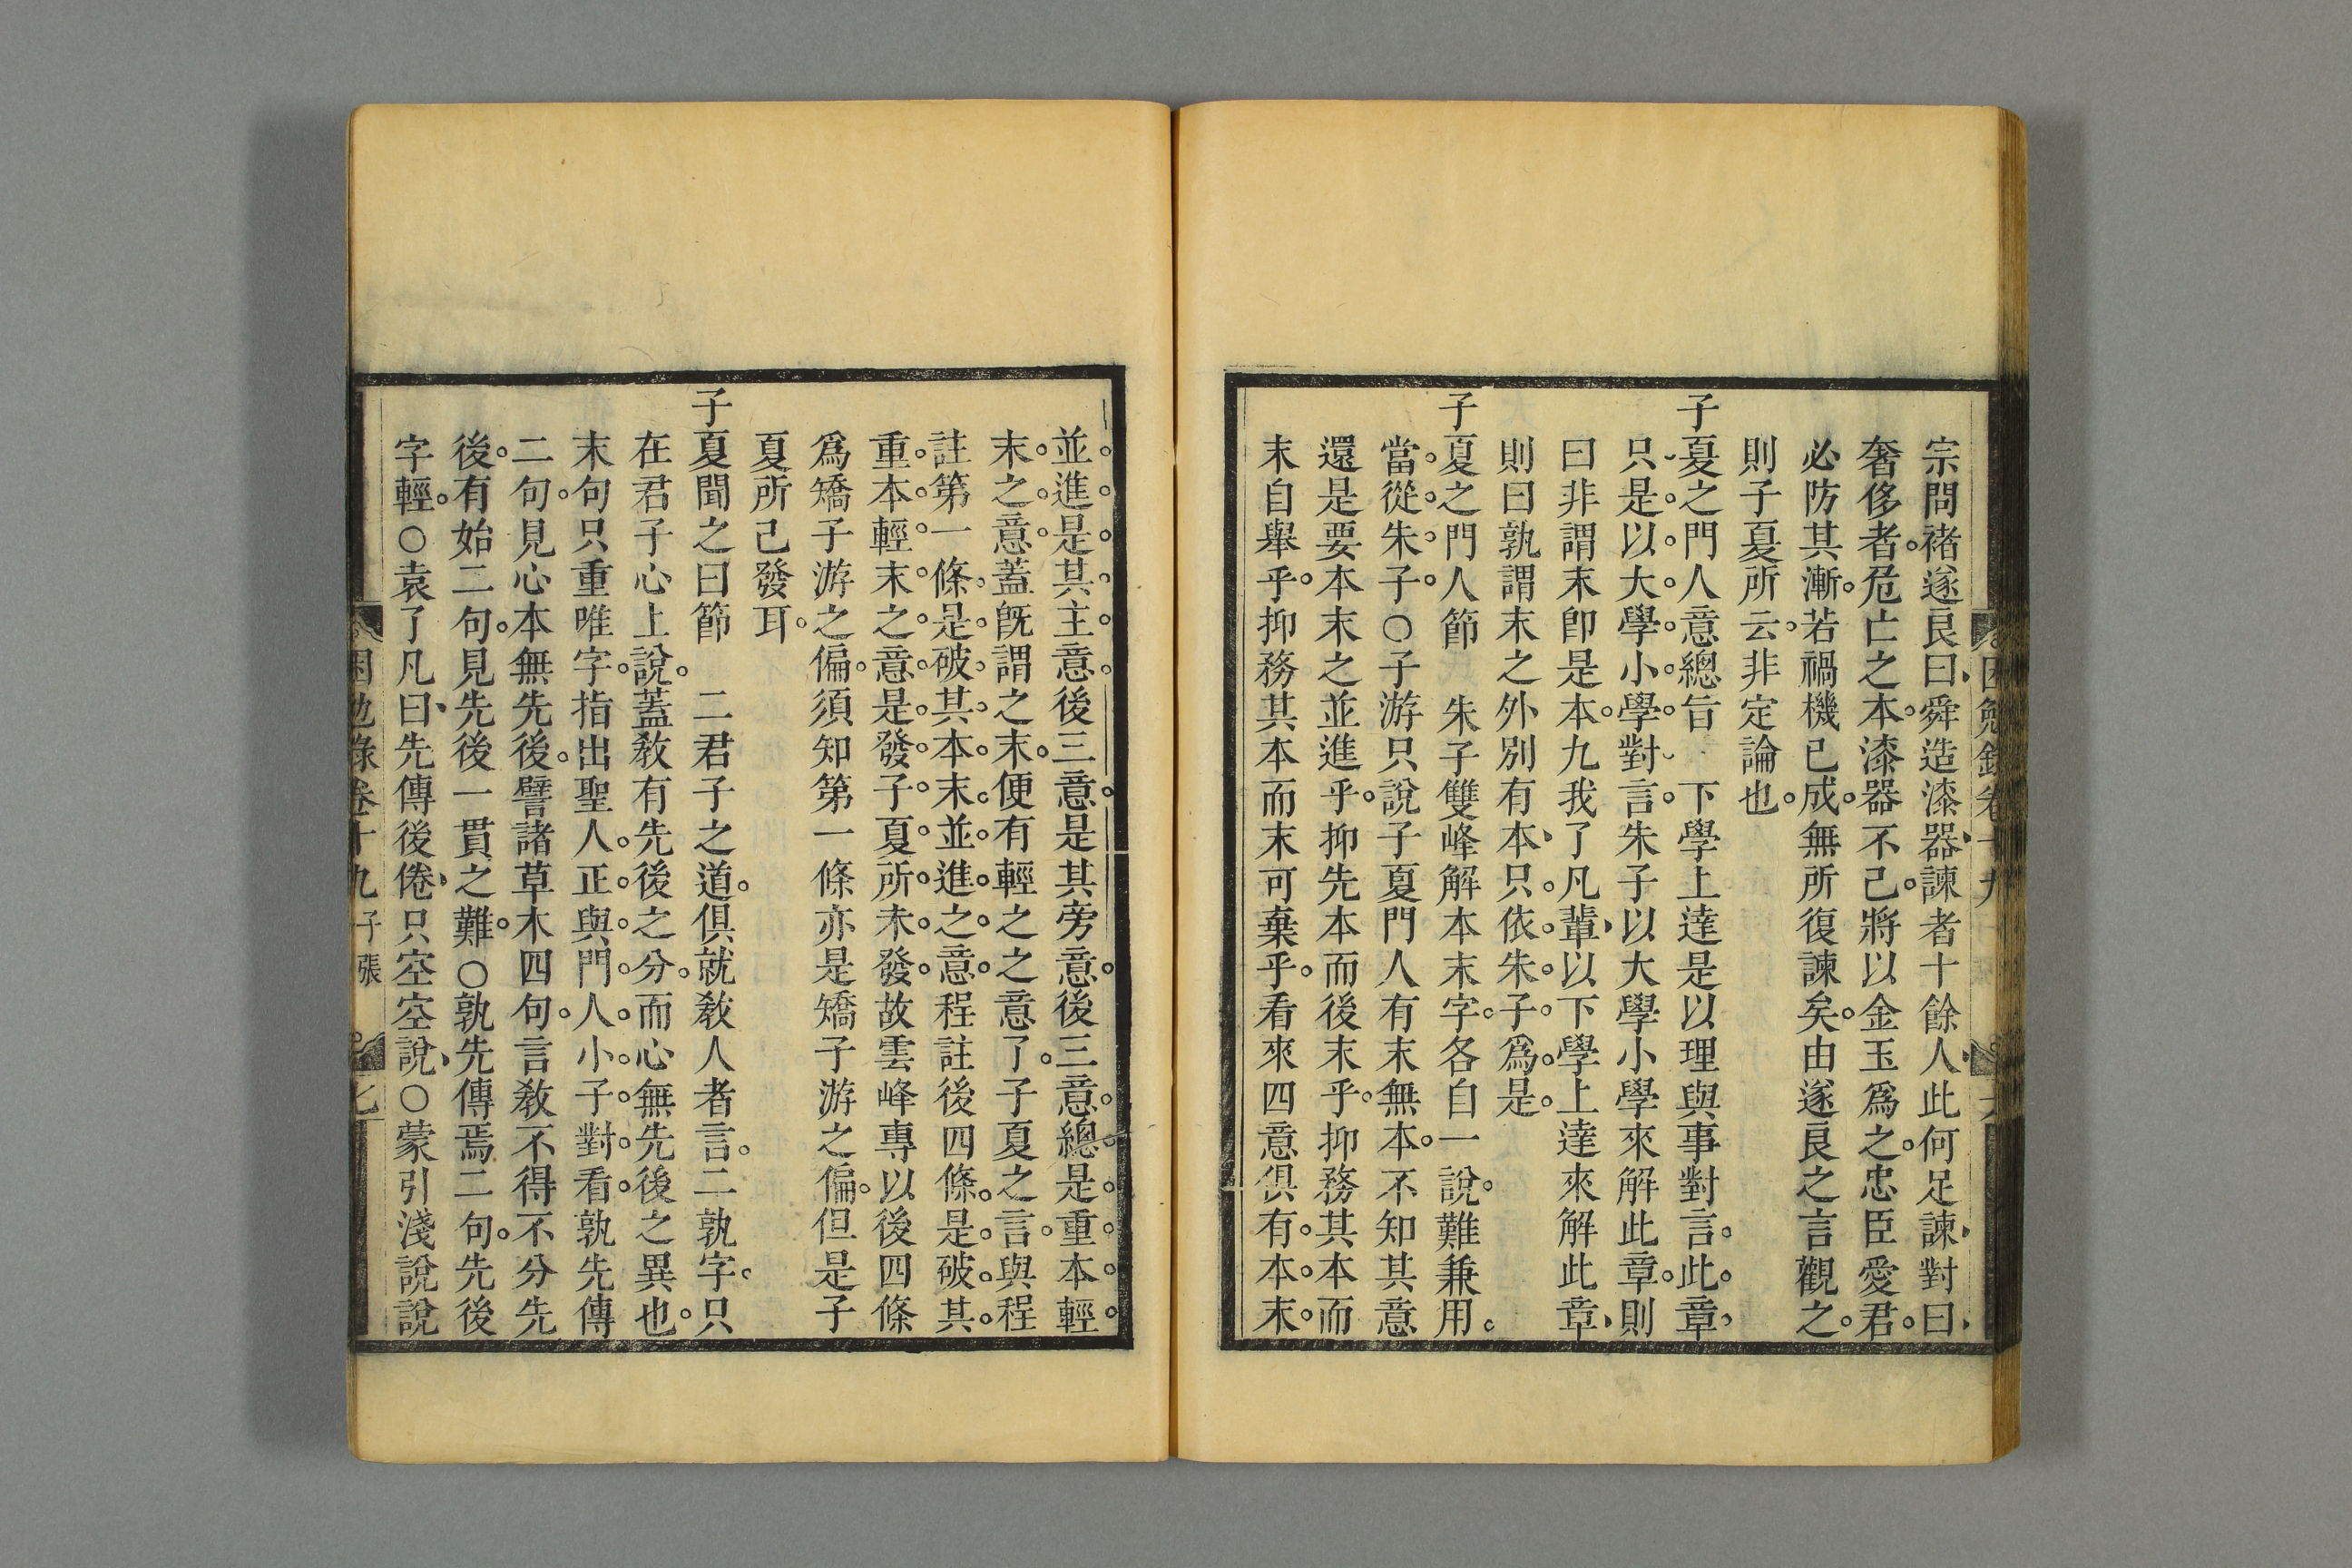 宗問褚遂良曰舜造漆器諫者十餘人此何足諫對曰
奢侈者危亡之本漆器不己將以金玉爲之忠臣愛君
必防其漸若禍機已成無所復諫矣由遂良之言觀之
則子夏所云非定論也
子夏之門人意總旨　下學上達是以理與事對言此章
只是以大學小學對言朱子以大學小學來解此章則
曰非謂末卽是本九我了凡輩以下學上達來解此章
則曰孰謂末之外別有本只依朱子爲是
子夏之門人節　朱子雙峰解本末字各自一說難兼用
當從朱子○子游只說子夏門人有末無本不知其意
還是要本末之並進乎抑先本而後末乎抑務其本而
末自舉乎抑務其本而末可棄乎看來四意俱有本末
並進是其主意後三意是其旁意後三意總是重本輕
末之意蓋旣謂之末便有輕之之意了子夏之言與程
註第一條是破其本末並進之意程註後四條是破其
重本輕末之意是發子夏所未發故雲峰專以後四條
爲矯子游之偏須知第一條亦是矯子游之偏但是子
夏所己發耳
子夏聞之曰節　二君子之道俱就敎人者言二孰字只
在君子心上說蓋敎有先後之分而心無先後之異也
末句只重唯字指出聖人正與門人小子對看孰先傳
二句見心本無先後譬諸草木四句言敎不得不分先
後有始二句見先後一貫之難○孰先傳焉二句先後
字輕○袁了凡曰先傳後倦只空空說○蒙引淺說說
困勉錄卷十九　子張　七